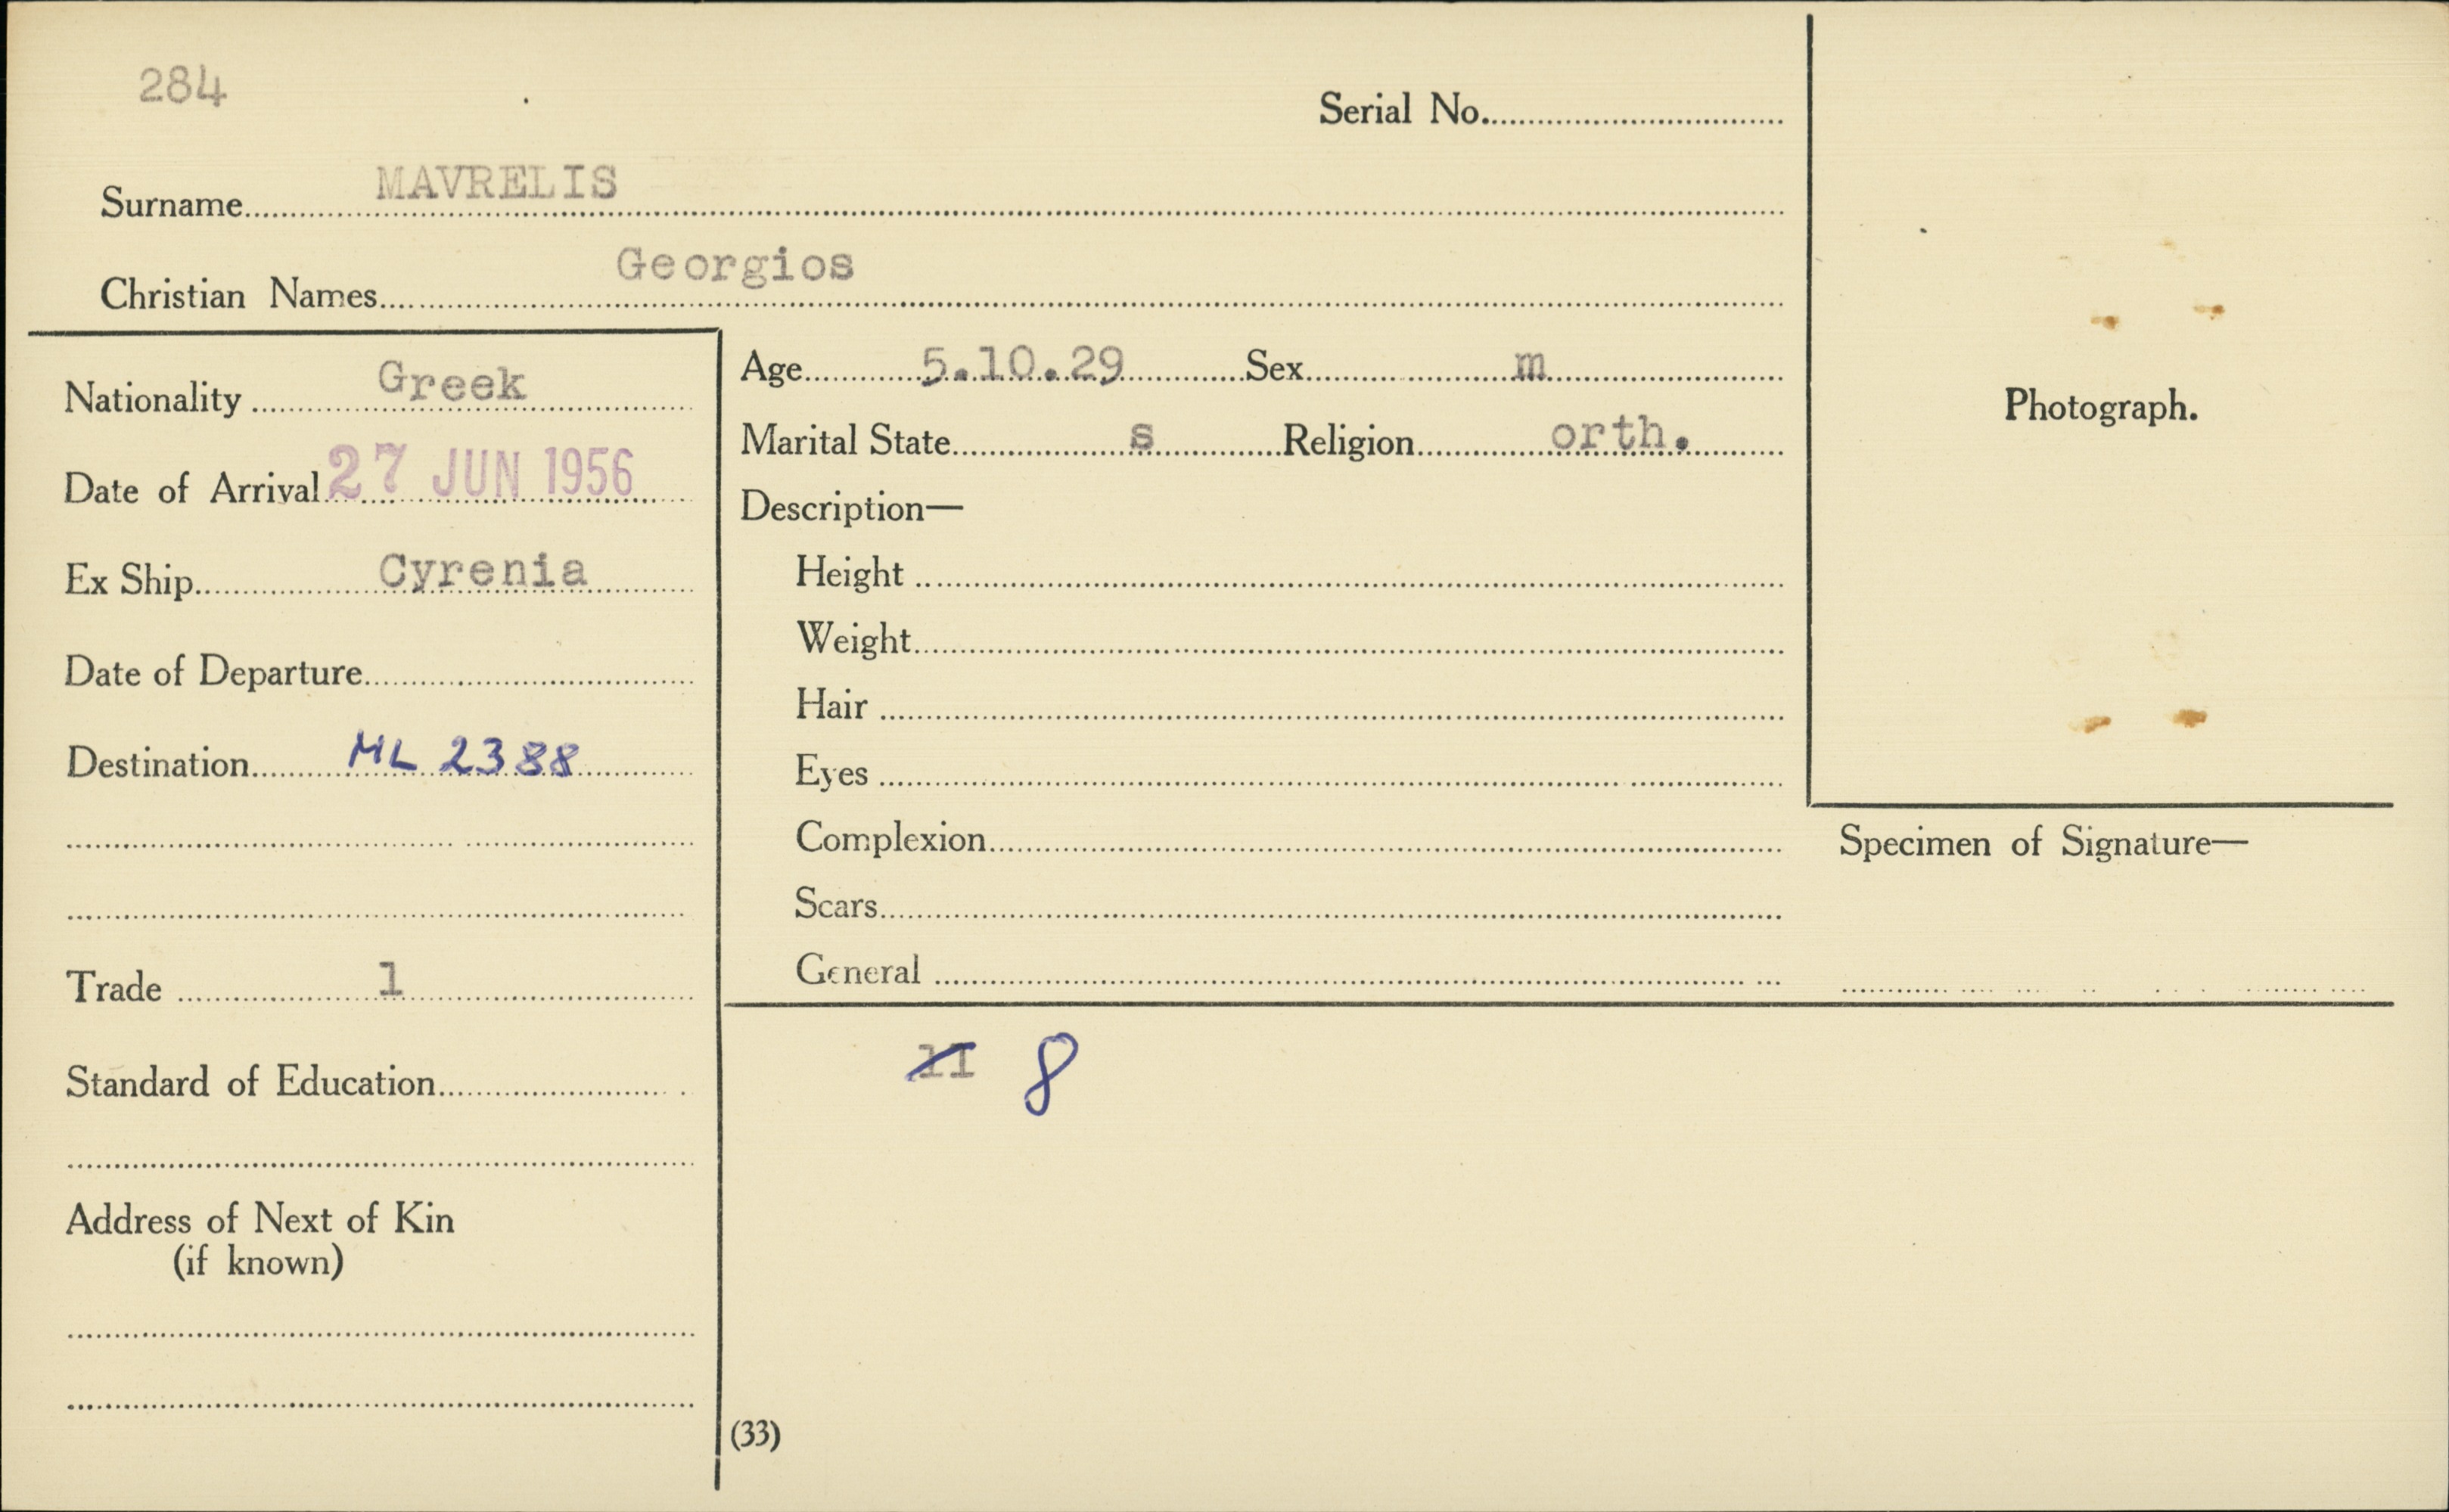 284
Serial No.
Surname MAVRELIS
Christian Names Georgios
Nationality Greek
Date of Arrival 27 JUN 1956
Ex Ship Cyrenia
Date of Departure
Destination ML 2388
Trade 1
Standard of Education
Address of Next of Kin
(if known)
Age 5.10.29 Sex m
Marital State s Religion orth.
Description—
Height
Weight
Hair
Eyes
Complexion
Scars
General
Photograph.
Specimen of Signature—
11 8
(33)